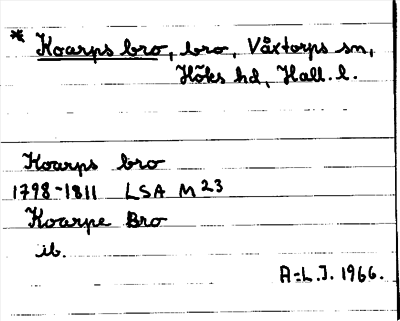 * Koarps bro, bro, Våxtorps sn,
Höks hd, Hall. l.
Koarps bro
1798-1811 LSA M23
Koarpe Bro
ib.
A-L.J. 1966.